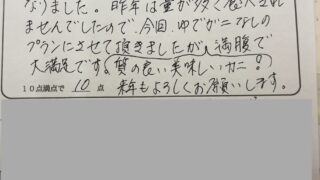 なりました。昨年は量が多く食べきれ
ませんでしたので、今回、ゆでガニなしの
プランにさせて頂きましたが、満腹で
大満足です。質の良い美味しいカニ?
10点満点で 10 点 来年もよろしくお願いします。